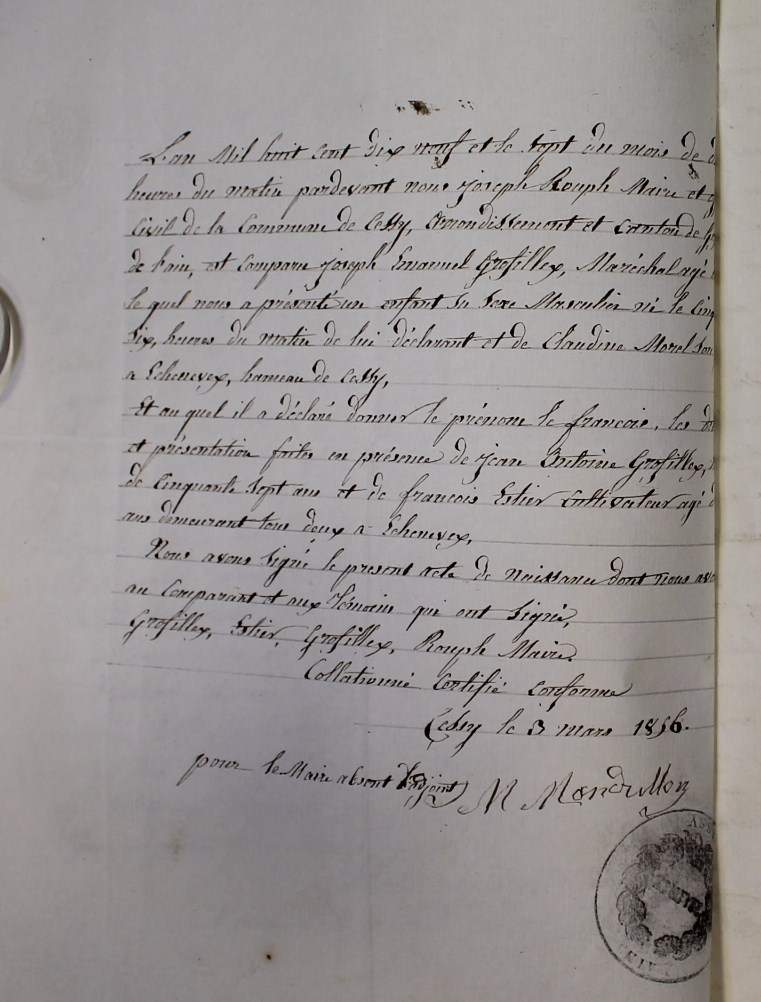 L'an Mil huit cent dix neuf et le sept du mois de
heures du matin pardevant nous joseph Rouph Maire et
Civil de la Commune de Cessy, arrondissement et canton de
de l'ain, est comparu joseph Emanuel Grosillex, Maréchal agé
le quel nous a présenté un enfant du sexe Masculin né le cinq
six, heures du matin de lui déclarant et de Claudine Morel son
a Echenevex, hameau de Cessy,
Et au quel il a déclaré donner le prénom de francois, les
et présentation faites en présence de jean Antoine Grosillex,
de Cinquante sept ans et de francois Estier Cultivateur agé
ans demeurant tous deux a Echenevex,
Nous avons signé le present acte de naissance dont nous
au Comparant et aux témoins qui ont signé,
Grosillex, Estier, Grosillex, Rouph Maire.
Collationné Certifié conforme
Cessy le 3 mars 1856.
pour le Maire absent l'adjoint